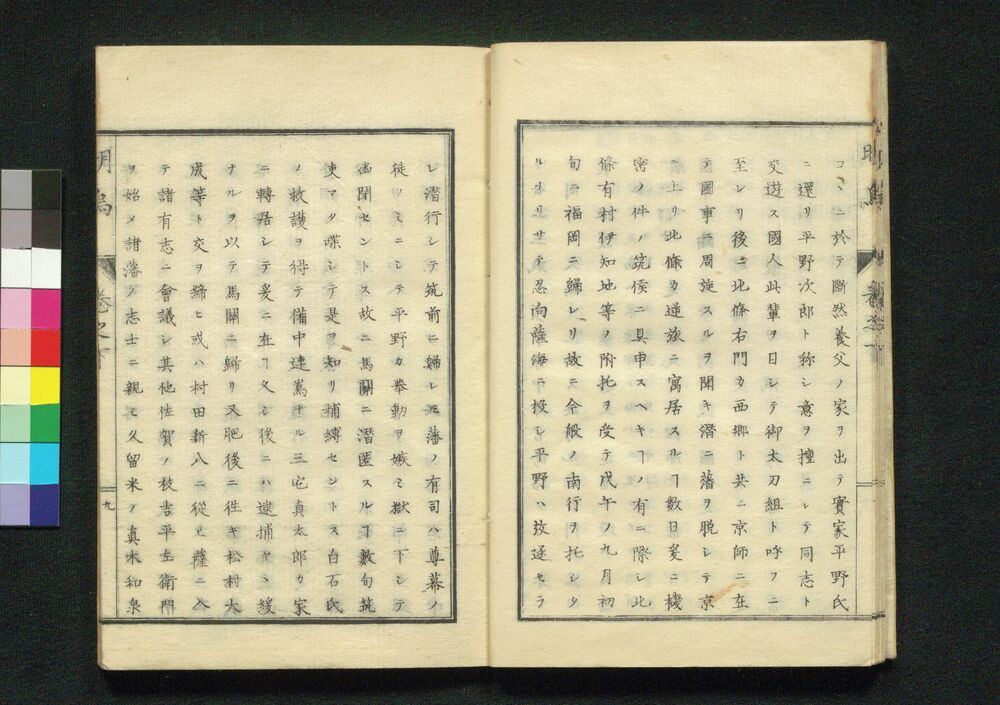 コヽニ於テ断然養父ノ家ヲ出テ實家平野氏
ニ還リ平野次郎ト称シ意ヲ擅ニシテ同志ト
交遊ス國人此輩ヲ目シテ御太刀組ト呼フニ
至レリ後ニ北條右門カ西郷ト共ニ京師ニ在
テ國事ニ周旋スルヲ聞キ潜ニ藩ヲ脱シテ京
ニ上リ北條カ逆旅ニ寓居スルヿ数日爰ニ機
密ノ件ノ筑侯ニ具申スヘキヿノ有ニ際シ此
條有村伊知地等ノ附托ヲ受テ戊午ノ九月初
旬ニ福岡ニ歸レリ故ニ今般ノ南行ヲ托シタ
ルナリサテ忍向薩海ニ投シ平野ハ放逐セラ
レ潜行シテ筑前ニ歸レ𪜈藩ノ有司ハ尊幕ノ
徒ノミニシテ平野カ挙動ヲ嫉ミ獄ニ下シテ
幽閉セントス故ニ馬關ニ潜匿スルヿ数旬筑
吏マタ喋シテ是ヲ知リ捕縛セントス白石氏
ノ救護ヲ得テ備中連嶌ナル三宅真太郎カ家
ニ轉居シテ爰ニ在ヿ久シ後ニハ逮捕ヤヽ緩
ナルヲ以テ馬關ニ歸リ又肥後ニ往キ松村大
成等ト交ヲ締ヒ或ハ村田新八ニ從ヒ薩ニ入
テ諸有志ニ會議シ其他佐賀ノ枝吉平左衛門
ヲ始メ諸藩ノ志士ニ親ミ久留米ノ真木和泉
明烏
巻之下
九